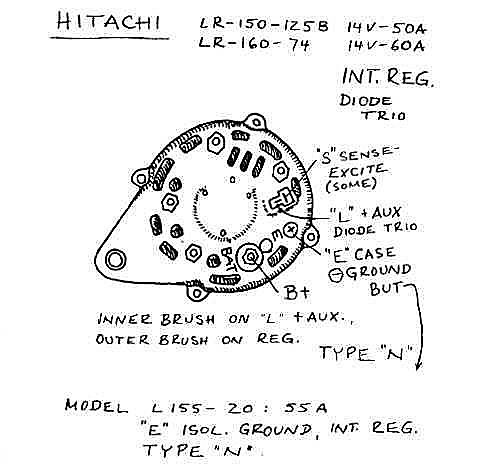 HITACHI
LR-150-125B 14V-50A
LR-160-74 14V-60A
INT. REG.
DIODE
TRIO
"S" SENSE-
EXCITE
(SOME)
"L" + AUX
DIODE TRIO
"E" CASE
⊖GROUND
BUT
E
BAT
B+
INNER BRUSH ON "L" + AUX.,
OUTER BRUSH ON REG.
TYPE "N"
MODEL L155-20: 55A
"E" ISOL. GROUND, INT. REG.
TYPE "N".